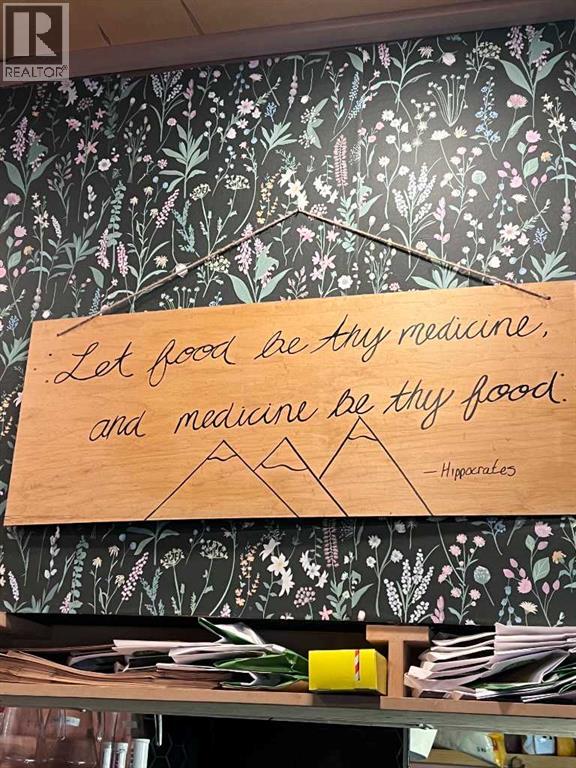 R
REALTOR®
Let food be thy medicine,
and medicine be thy food.
— Hippocrates